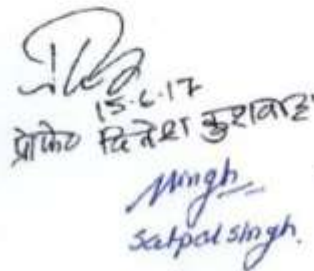 15.6.17
प्रोफे० दिनेश कुशवाह
Singh
Satpal singh.